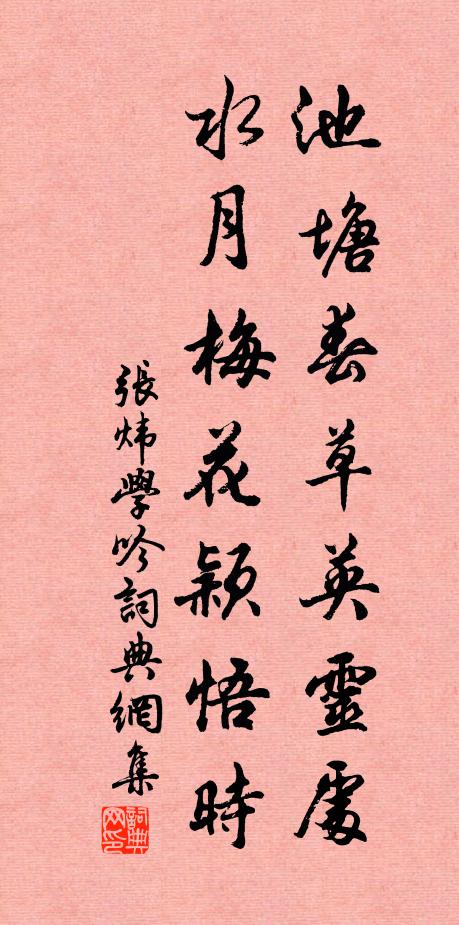 池塘春草英靈處
水月梅花颖悟時
張炜學吟詞典網集
詞典网印